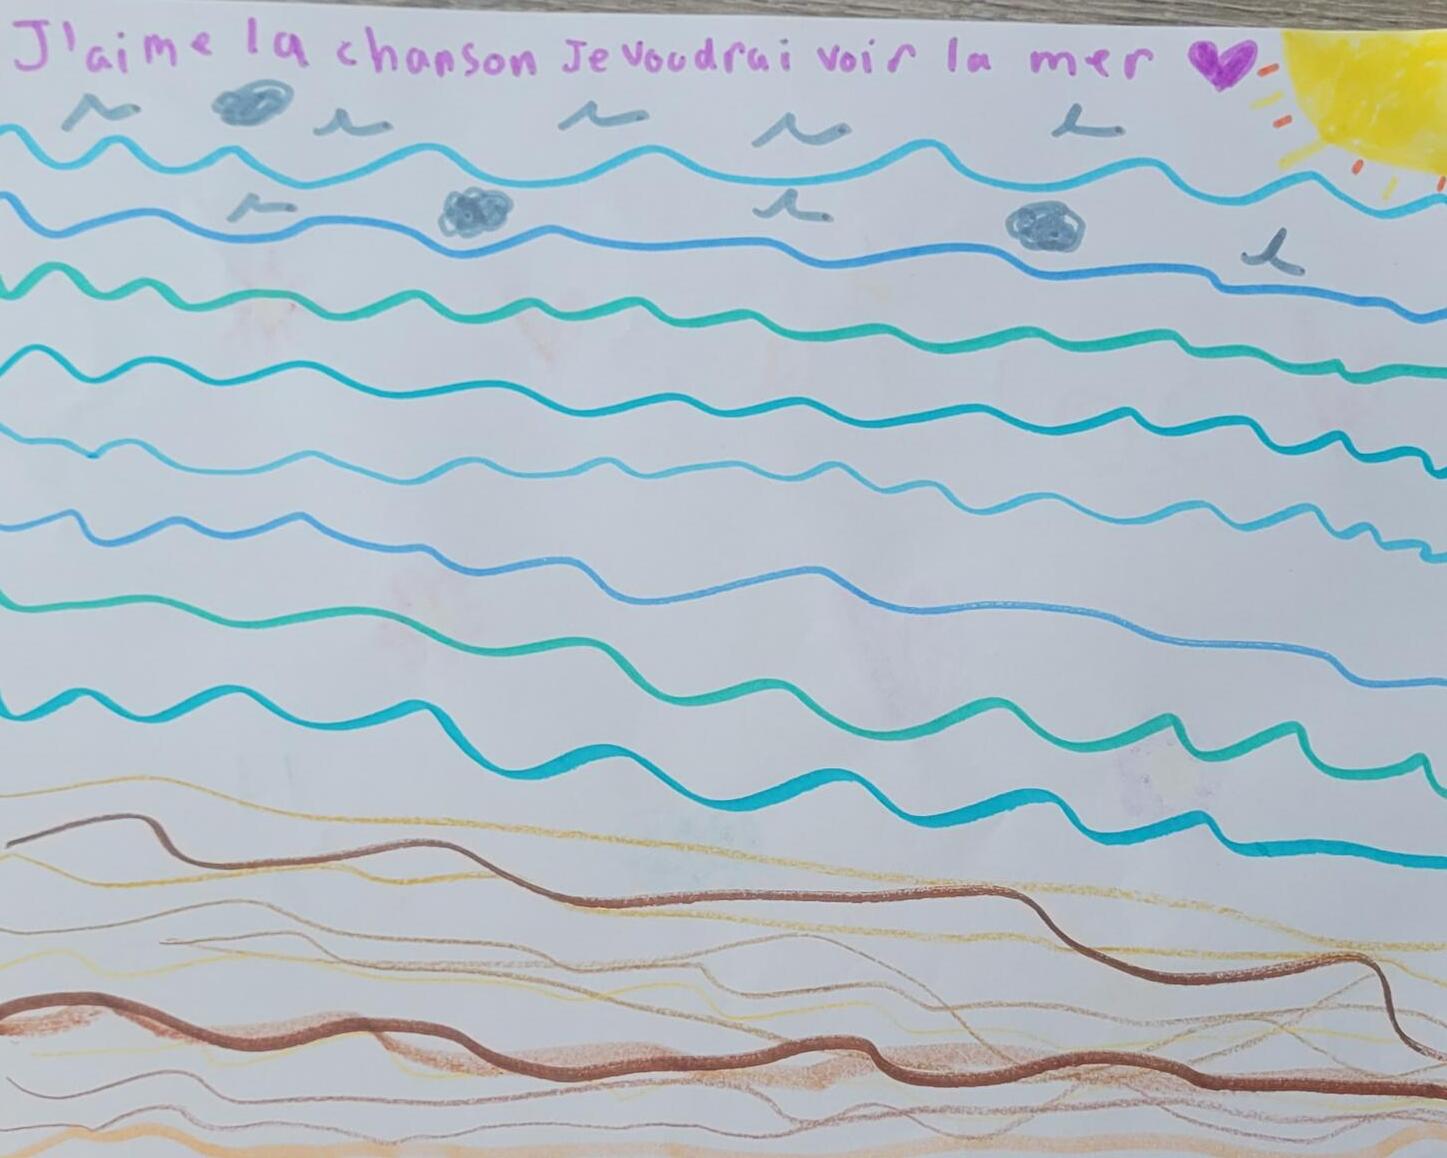 J'aime la chanson Je voudrai voir la mer